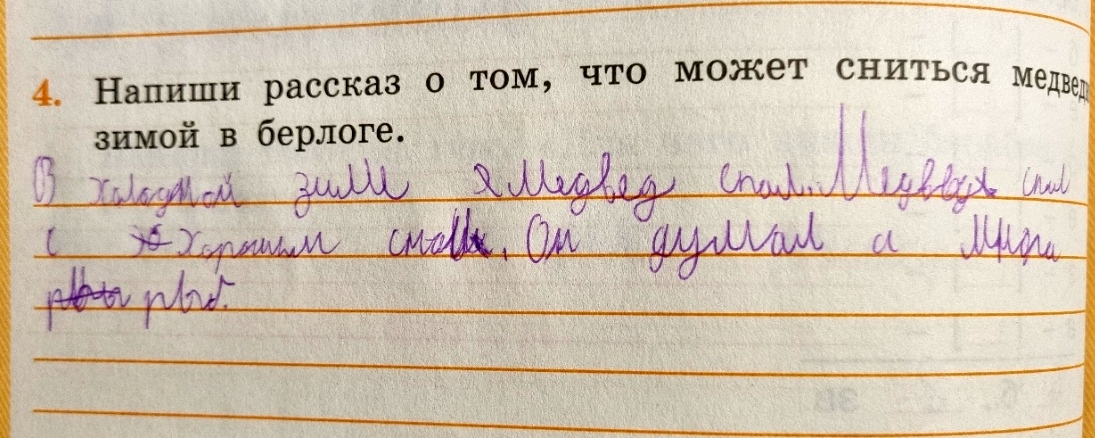 4. Напиши рассказ о том, что может сниться медвед
зимой в берлоге.
В холодной зиме я медвед спал. Медвед спал
с хорошим сном. Он думал а
рыб.